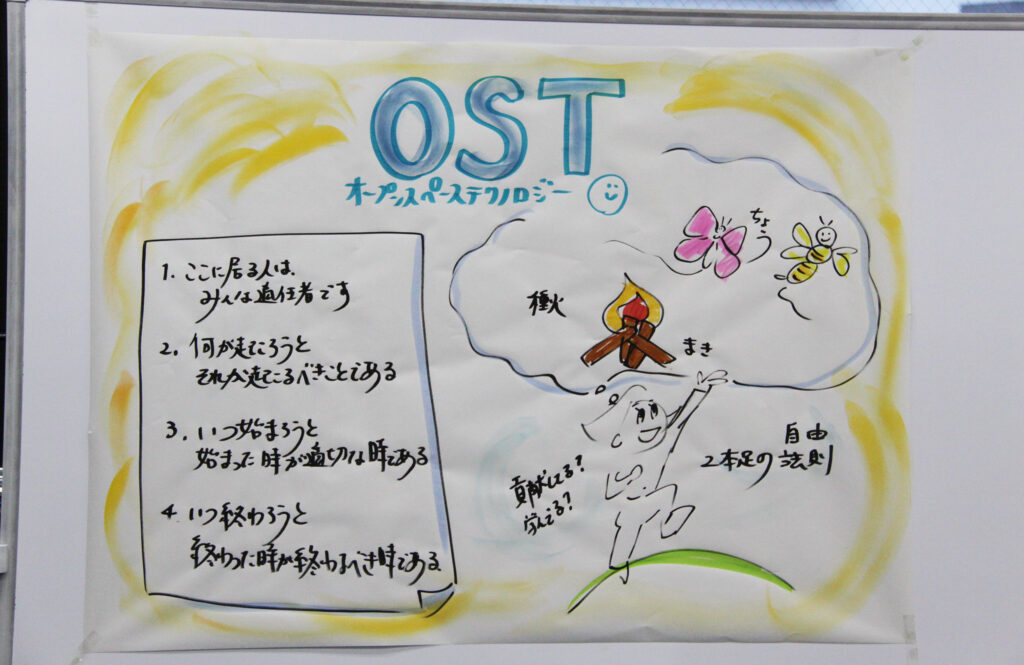 OST
オープンスペーステクノロジー
1. ここに居る人は、
みんな適任者です
2. 何が起ころうと
それが起こるべきことである
3. いつ始まろうと
始まった時が適切な時である
4. いつ終わろうと
終わった時が終わるべき時である
ちょう
種火
まき
自由
2本足の法則
貢献してる?
学んでる?